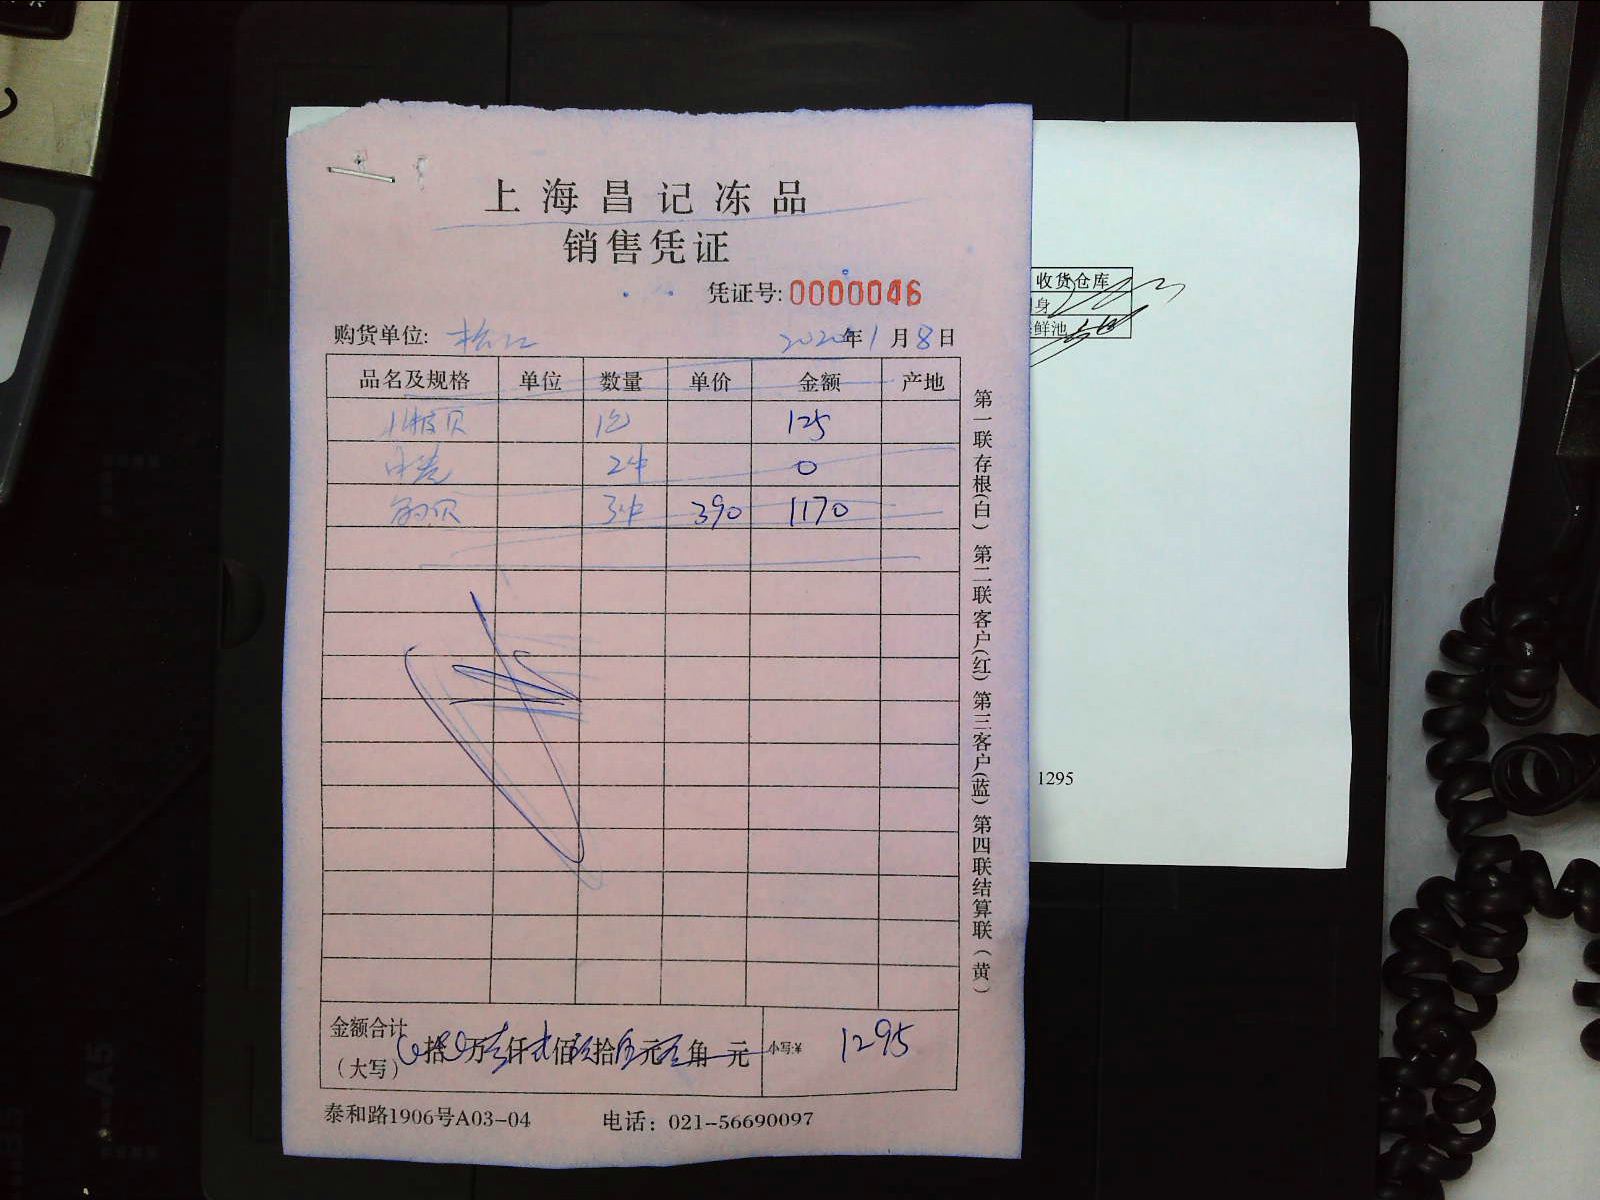 上海昌记冻品
销售凭证
凭证号: 0000046
购货单位: 松江 2020年1月8日
品名及规格 单位 数量 单价 金额 产地
贝 1包 125
2件 0
贝 3件 390 1170
金额合计
(大写) 拾 万壹仟贰佰玖拾伍元 角 元 小写:¥ 1295
泰和路1906号A03-04 电话: 021-56690097
第一联存根(白) 第二联客户(红) 第三客户(蓝) 第四联结算联(黄)
收货仓库
身
鲜池
1295